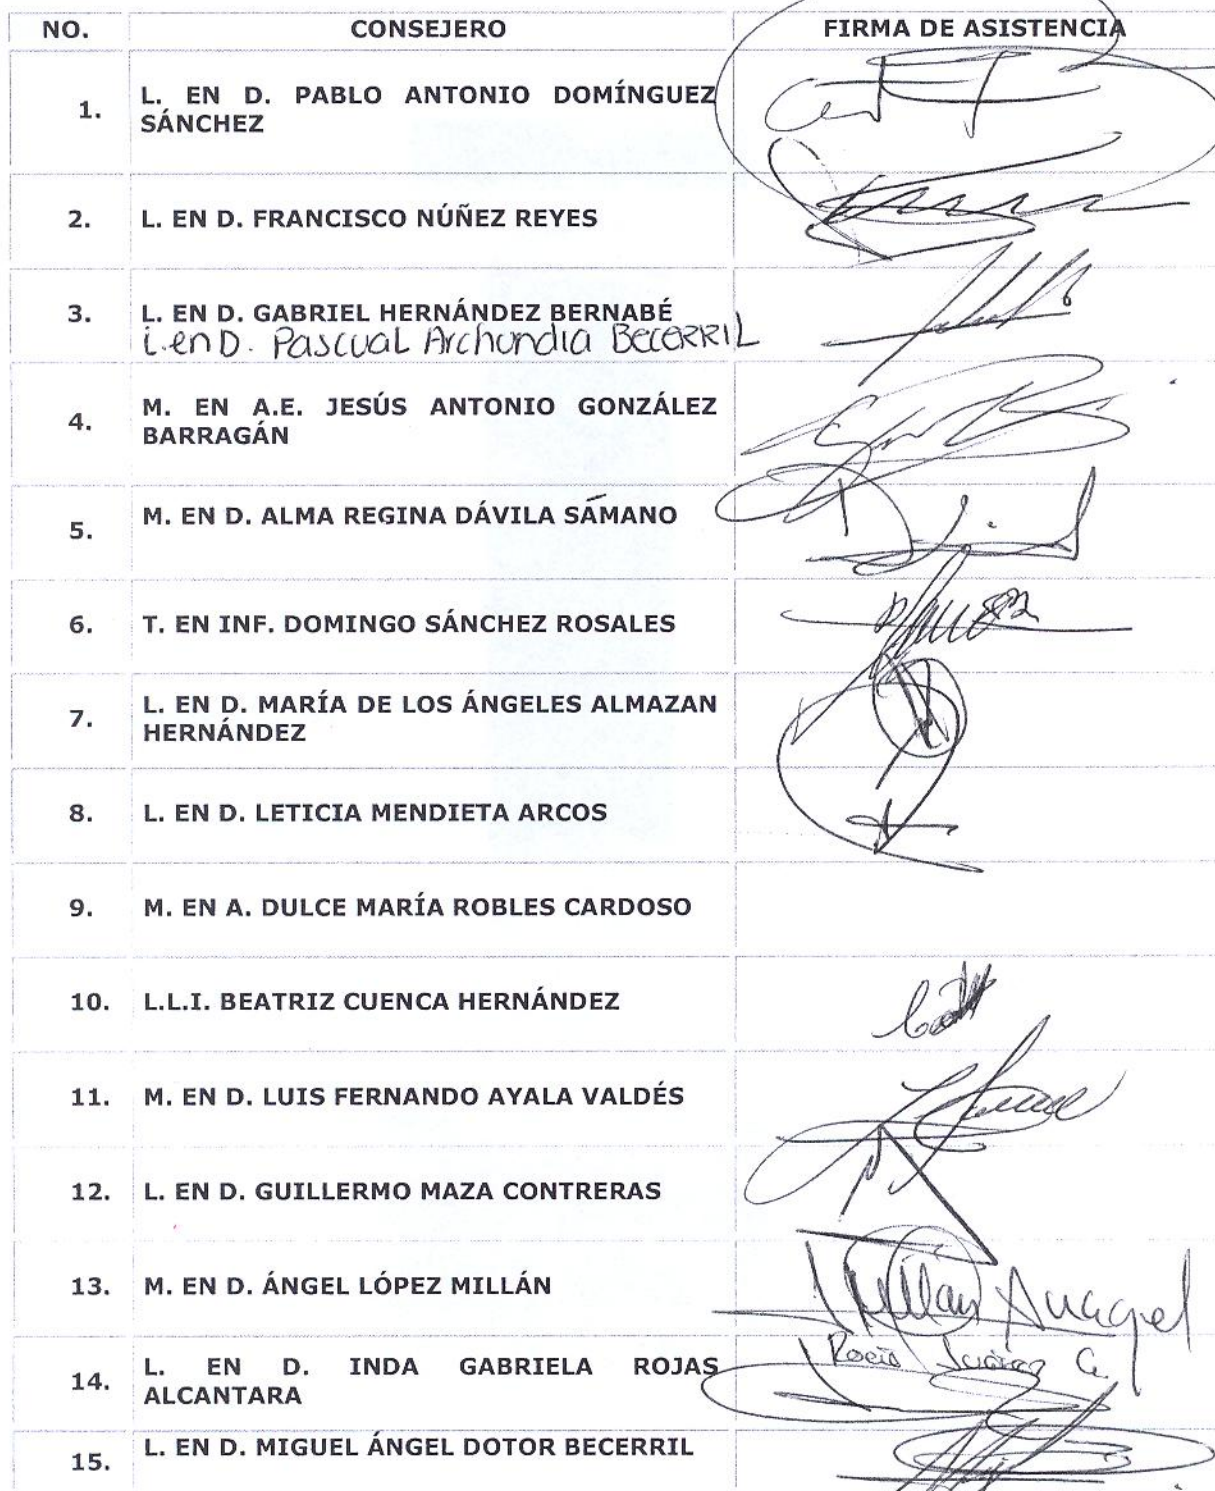 NO. CONSEJERO FIRMA DE ASISTENCIA
1. L. EN D. PABLO ANTONIO DOMÍNGUEZ
SÁNCHEZ
2. L. EN D. FRANCISCO NÚÑEZ REYES
3. L. EN D. GABRIEL HERNÁNDEZ BERNABÉ
L. en D. Pascual Archundia Becerril
4. M. EN A.E. JESÚS ANTONIO GONZÁLEZ
BARRAGÁN
5. M. EN D. ALMA REGINA DÁVILA SÁMANO
6. T. EN INF. DOMINGO SÁNCHEZ ROSALES
7. L. EN D. MARÍA DE LOS ÁNGELES ALMAZAN
HERNÁNDEZ
8. L. EN D. LETICIA MENDIETA ARCOS
9. M. EN A. DULCE MARÍA ROBLES CARDOSO
10. L.L.I. BEATRIZ CUENCA HERNÁNDEZ
11. M. EN D. LUIS FERNANDO AYALA VALDÉS
12. L. EN D. GUILLERMO MAZA CONTRERAS
13. M. EN D. ÁNGEL LÓPEZ MILLÁN
14. L. EN D. INDA GABRIELA ROJAS
ALCANTARA
Rocío Juárez G.
15. L. EN D. MIGUEL ÁNGEL DOTOR BECERRIL